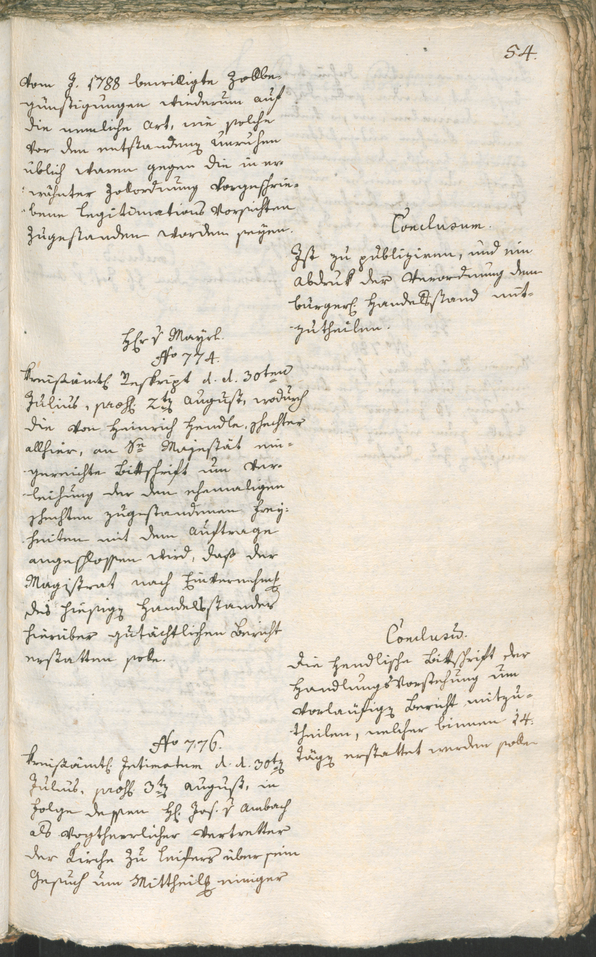 54.
vom J. 1788 bewilligte Zollbe-
günstigungen wiederum auf
die nemliche Art, wie solche
vor den entstandenen Unruhen
üblich waren gegen die in er-
wähnter Zollordnung vorgeschrie-
bene Legitimations Vorsichten
zugestanden worden seyen.
Conclusum.
Ist zu publiziren, und ein
Abdruck der Verordnung dem
bürgerl. Handelsstand mit-
zutheilen.
H: v Mayrl.
No 774.
Kreisämtl. Reskript d. d. 30ten
Julius, praes. 2ten August, wodurch
die von Heinrich Hendle,
allhier, an Se. Majestät ein-
gereichte Bittschrift um Ver-
leihung der den ehemaligen
zugestandenen Frey-
heiten mit dem Auftrage
angeschlossen wird, daß der
Magistrat nach Einvernehmung
des hiesigen Handelsstandes
hierüber gutächtlichen Bericht
erstatten solle.
Conclusum.
Die Hendlische Bittschrift der
Handlungsvorstehung um
vorläufigen Bericht mitzu-
theilen, welcher binnen 14
Tägen erstattet werden solle
No 776.
Kreisämtl. Intimatum d. d. 30ten
Julius, praes. 3ten August, in
Folge dessen H. Jos. v Ambach
als Vogtherrlicher Vertretter
der Kirche zu Leifers über sein
Gesuch um Mittheilung einiger